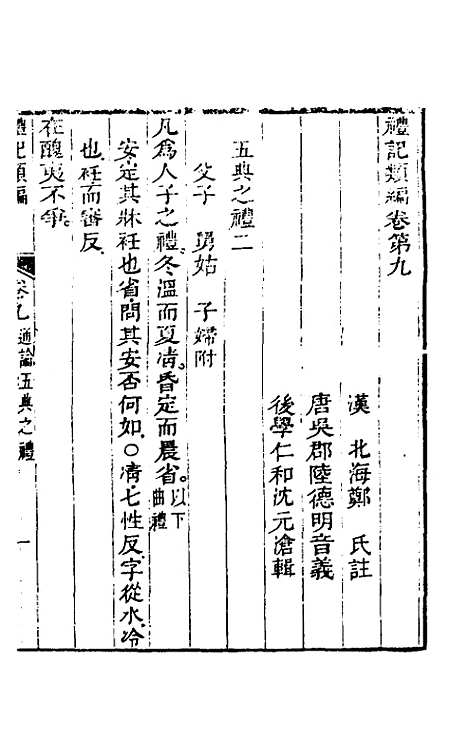 禮記類編卷第九
漢 北海鄭 氏註
唐吳郡陸德明音義
後學仁和沈元滄輯
五典之禮二
父子 舅姑 子婦附
凡爲人子之禮冬溫而夏凊昏定而晨省以下曲禮
安定其牀衽也省問其安否何如○凊七性反字從水冷
也衽而審反
在醜夷不爭
禮記類編 卷九 通論五典之禮 一